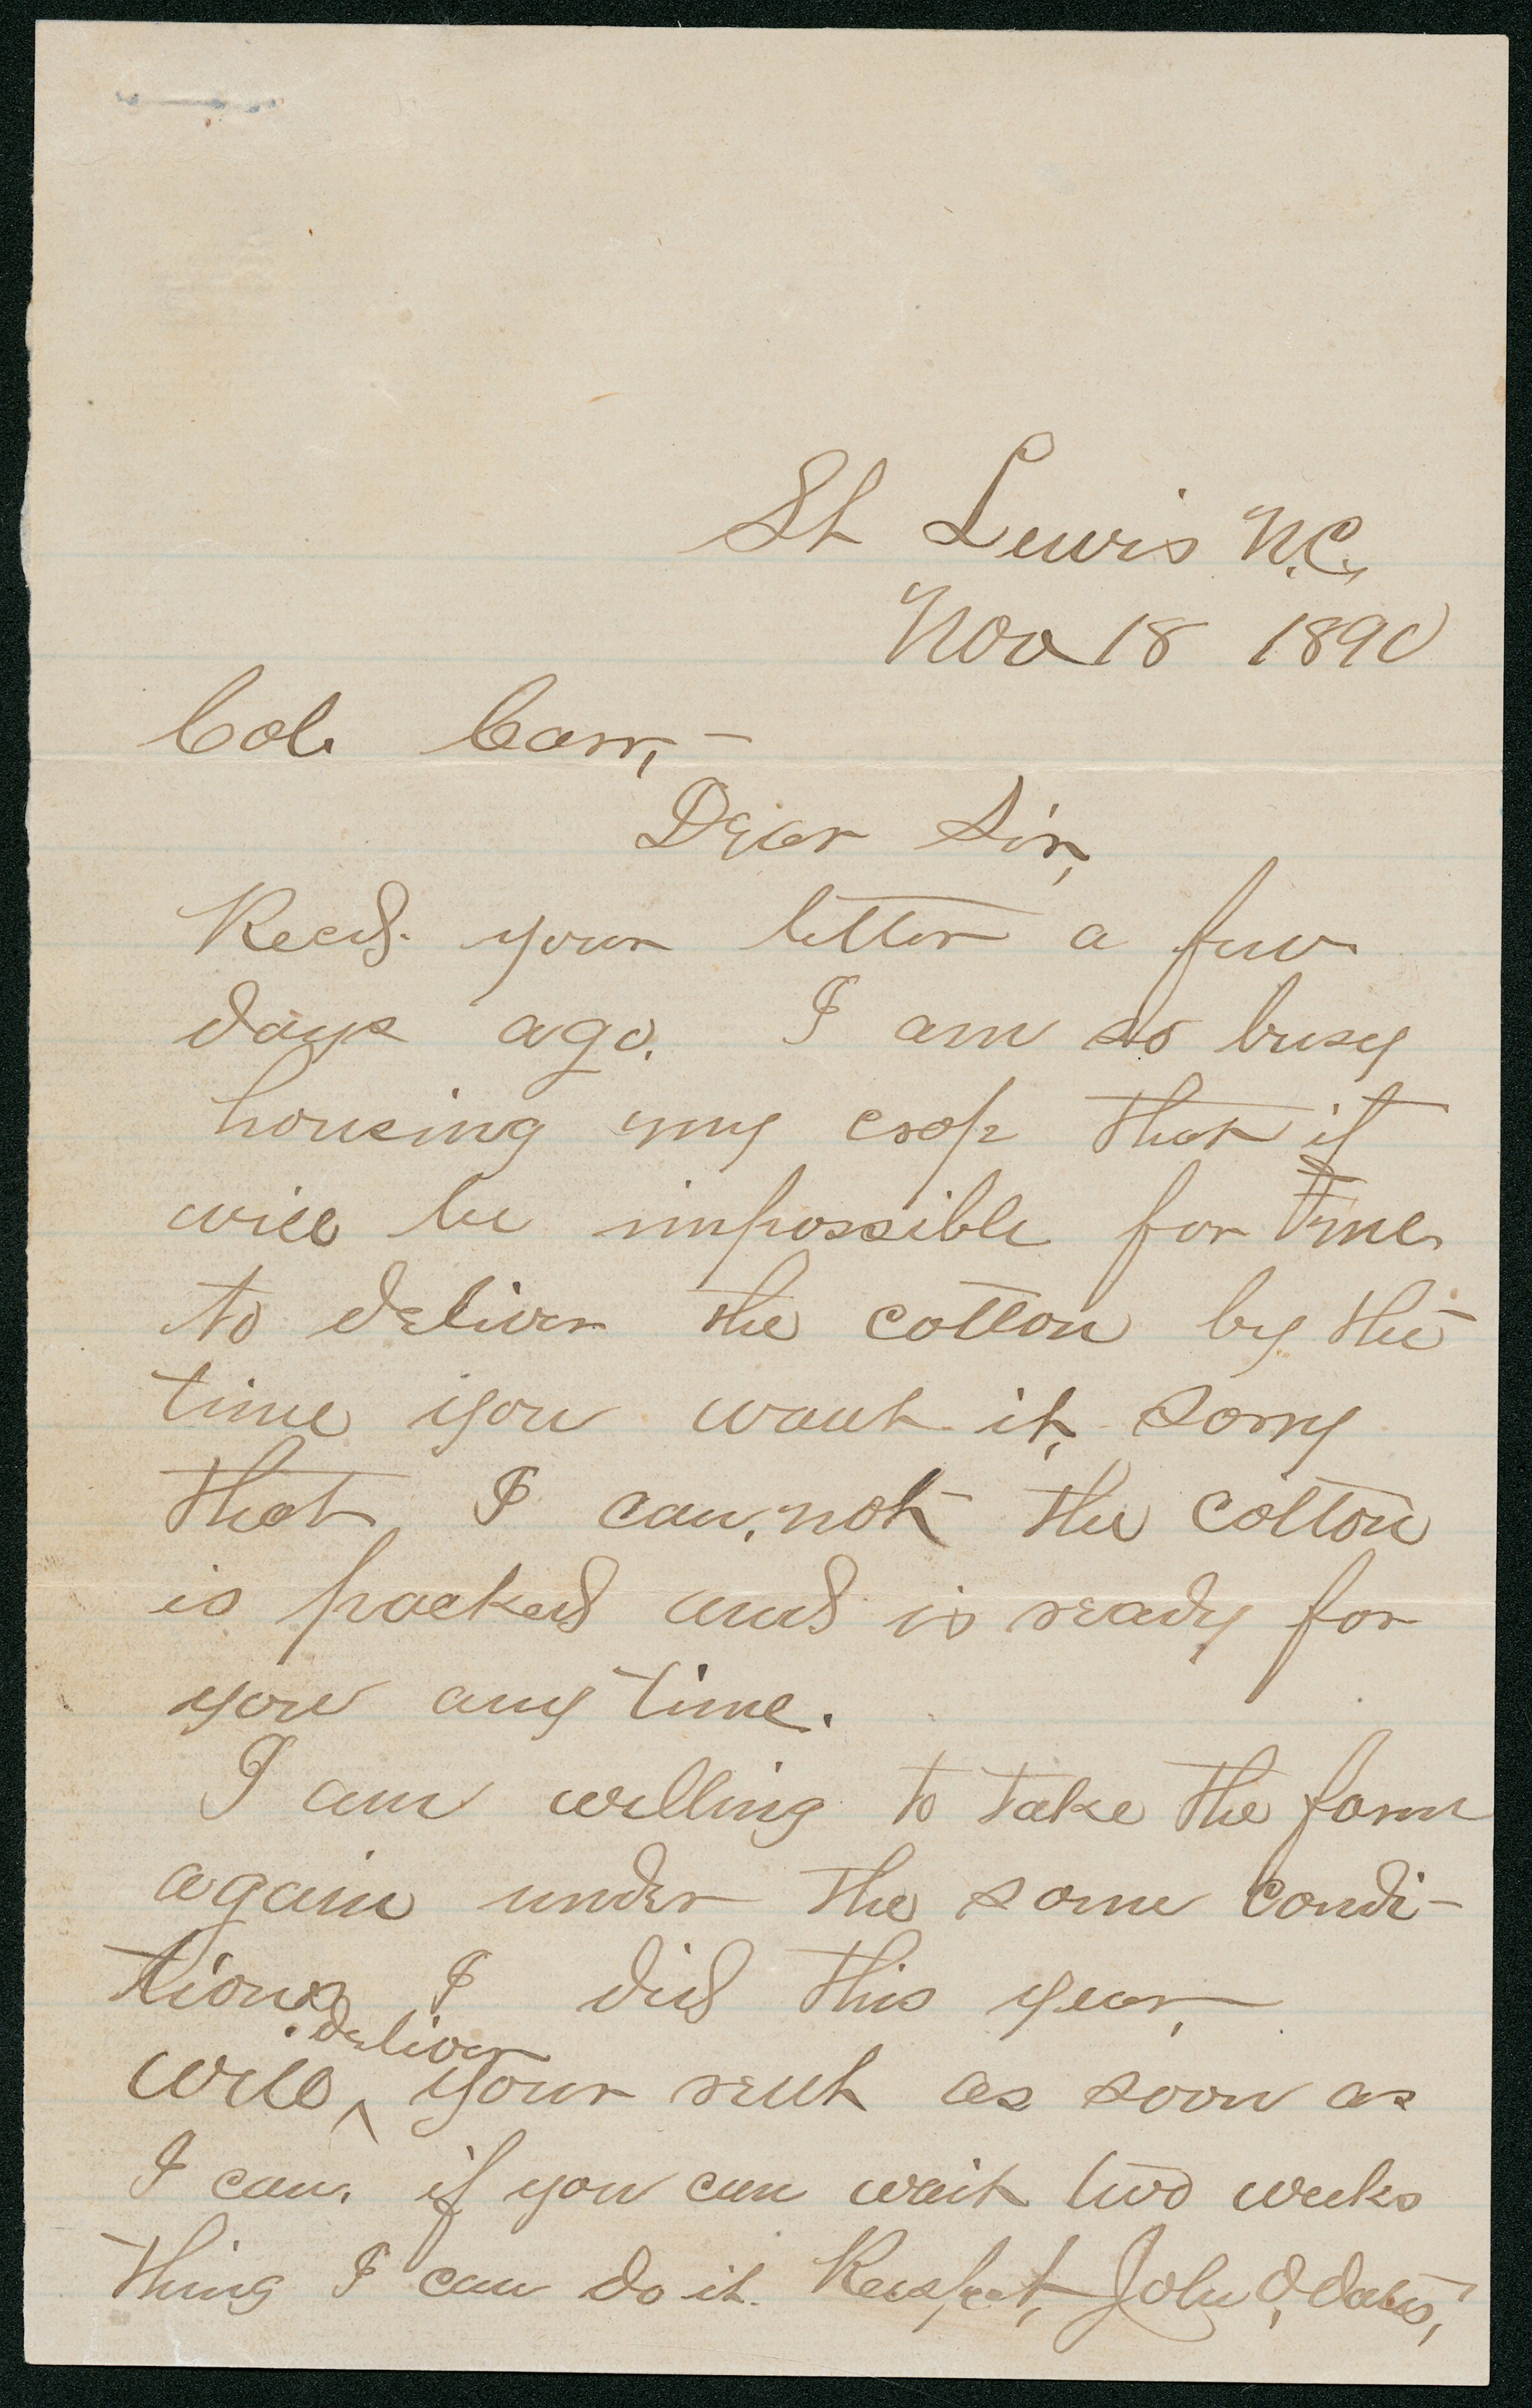 St Lewis N.C.,
Nov 18 1890
Col. Carr,-
Dear Sir,
Recd. your letter a few
days ago. I am so busy
housing my crop that it
will be impossible for me
to deliver the cotton by the
time you want it, sorry
that I can, not the cotton
is packed and is ready for
you any time.
I am willing to take the farm
again under the same condi-
tions I did this year,
will ^ deliver your rent as soon as
I can, if you can wait two weeks
thing I can do it. Respect, John O,